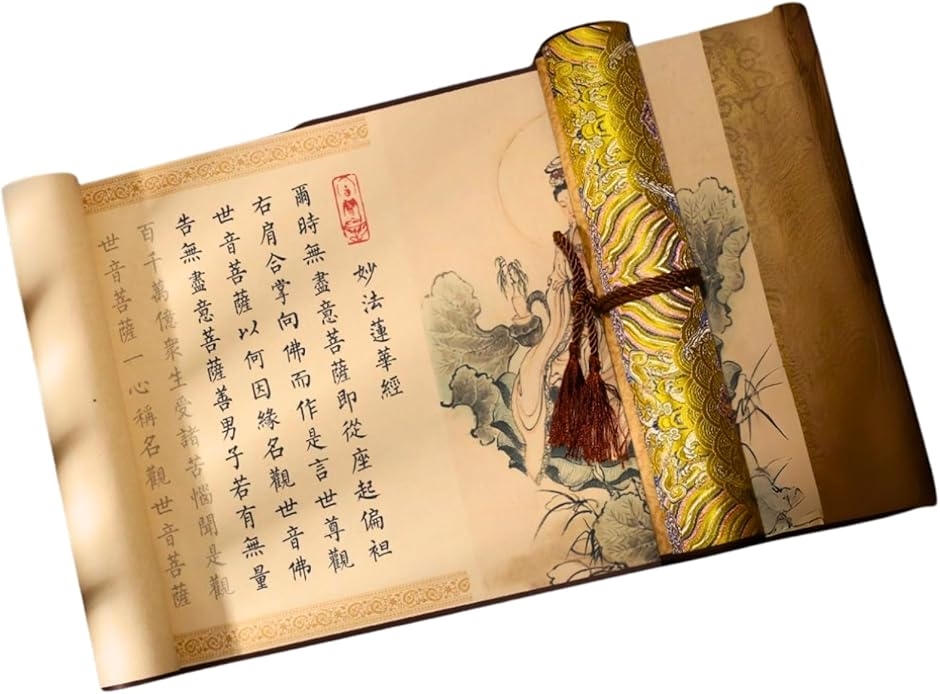 妙法蓮華經
爾時無盡意菩薩即從座起偏袒
右肩合掌向佛而作是言世尊觀
世音菩薩以何因緣名觀世音佛
告無盡意菩薩善男子若有無量
百千萬億衆生受諸苦惱聞是觀
世音菩薩一心稱名觀世音菩薩